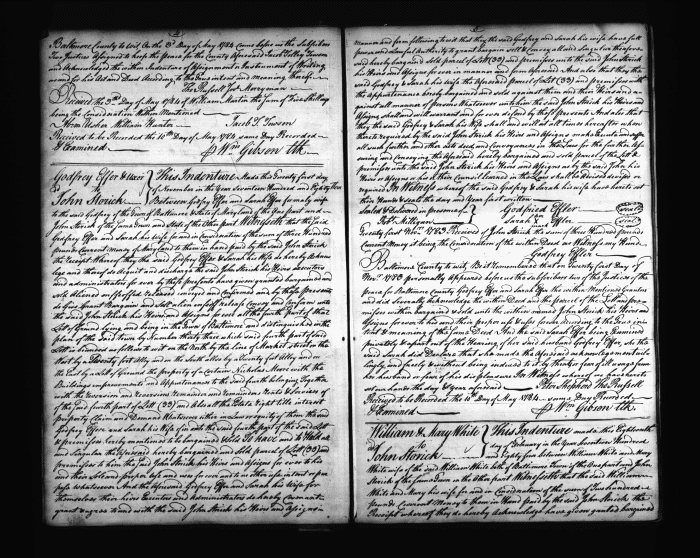 Baltimore County to wit, On the 3d Day of May 1784 Came before us the Subscribers
Two Justices assigned to keep the peace for the County aforesaid Jacob Towson
and Acknowledged the within Indenture of Assignment or Instrument of Writing
to be his Act and Deed According to the true intent and meaning thereof
Thos Russell Jno Merryman
Received the 3rd Day of May 1784 of William Hunter the sum of five Shillings
being the Consideration within Mentioned
William Hunter Jacob T. Towson
Received to be Recorded the 10th Day of May 1784 same Day Recorded
& Examined Wm Gibson Clk
Godfrey Effer & Uxor This Indenture Made this Twenty first day
To of November in the Year Seventeen Hundred and Eighty three
John Storick Between Godfrey Effer and Sarah Effer formerly wife
to the said Godfrey of the Town of Baltimore & State of Maryland of the One part and
John Strick of the same Town and State of the Other part Witnesseth that the said
Godfrey and Sarah his Wife for and in Consideration of the sum of three Hundred
pounds Current money of Maryland to them in hand paid by the said John Strick
the Receipt Whereof they the said Godfrey Effer & Sarah his Wife do hereby acknow
ledge and thereof do Acquit and discharge the said John Strick his Heirs executors
and administrators for ever by these presents have given granted bargained and
sold Aliened enfeoffed released Conveyed and Confirmed and by these presents
do Give Grant Bargain and sell alien enfeoff release Convey and Confirm unto
the said John Strick his Heirs and Assigns for ever all the fourth part of that
Lott of Ground lying and being in the Town of Baltimore and distinguished on the
plan of the said Town by Number thirty three which said fourth part of said
Lott is bounded as follows to wit on the North by the line of Market Street on the
West by a Twenty foot Alley and on the South also by a Twenty foot Alley and on
the East by a Lott of Ground the property of a certain Nicholas More with the
Buildings improvements and Appurtenances to the said fourth belonging Together
with the Reversion and Reversions Remainder and Remainders Rents & Services of
the said fourth part of Lott (33) and Also all the Estate right title interest
property Claim and Demand Whatsoever either in Law or equity of them the said
Godfrey Effer and Sarah his Wife of in and to the said fourth part of the said Lott
& premises hereby mentioned to be bargained & Sold To Have and To Hold all
and Singular the Aforesaid hereby bargained and Sold parcel of Lott (33) and
premises to him the said John Strick his Heirs and Assigns for ever to his
and their Sole and proper use and uses for ever and to no other intent or pur
pose whatsoever And the aforesaid Godfrey Effer and Sarah his Wife for
themselves their heirs Executors and Administrators do hereby Covenant
grant & agree to and with the said John Strick his Heirs and Assigns in
manner and form following to wit that they the said Godfrey and Sarah his Wife have full
power and lawful Authority to grant bargain sell & Convey all and Singular the afore
said hereby bargained and sold parcel of Lott (33) and premises unto the said John Strick
his Heirs and Assigns for ever in manner and form Aforesaid And also that they the
said Godfrey & Sarah his Wife the Aforesaid parcel of Lott (33) and premises with
the appurtenances hereby bargained and sold against them and their Heirs and
against all manner of persons Whatsoever unto him the said John Strick his Heirs and
Assigns shall and will warrant and for ever defend by these presents And also that
they the said Godfrey & Sarah his Wife shall and will at all times hereafter when
thereto required by the said John Strick his Heirs and Assigns make Execute and suffer
all such further and other acts deeds and Conveyances in the Law for the further As
suring and Conveying the Aforesaid hereby bargained and sold parcel of the Lott &
premises unto the said John Strick his Heirs and Assigns as by the said John his
Heirs or Assigns or his or their Council learned in the Law shall be devised advised or
required In Witness whereof the said Godfrey & Sarah his Wife have hereto set
their Hands & Seals the day and Year first written
Sealed & Delivered in presence of Godfried Effer
Robt Milligan Sarah Effler
Twenty first Novr 1783 Received of John Strick the sum of three Hundred pounds
Current Money it being the Consideration of the within Deed as Witness my Hand
Godfrey Effler
Baltimore County to wit, Be it Remembered that on Twenty first Day of
Novr 1783 personally Appeared before us the subscribers two of the Justices of the
peace for Baltimore County Godfrey Effer and Sarah Effer the within Mentioned Grantors
and did Severally Acknowledge the within Deed and the parcel of the Lott and pre
mises within bargained & sold unto the within named John Strick his Heirs and
Assigns for ever to his and their proper use & uses for ever According to the true in
tent & meaning of the same Deed. And the said Sarah Effer being Examined
privately & apart out of the Hearing of her said husband Godfrey Effer, she the
said Sarah did Declare that she made the Aforesaid acknowledgement wil
lingly and freely & without being induced to it by threats or fear of ill usage from
her husband or fear of his displeasure In Witness whereof we have hereunto
set our hands the day & year aforesaid Peter Shepherd Thos Russell
Received to be Recorded the 10th Day of May 1784 same Day Recorded
& Examined Wm Gibson Clk
William & Mary White This Indenture made this Eighteenth
to day of February in the Year Seventeen Hundred
John Storick and Eighty four between William White and Mary
White wife of the said William White both of Baltimore Town of the One part and John
Strick of the same Town on the other part Witnesseth that the said William
White and Mary his wife for and in Consideration of the sum of Two hundred
pounds Current Money to them in Hand paid by the said John Strick the
Receipt whereof they do hereby Acknowledge have given granted bargained